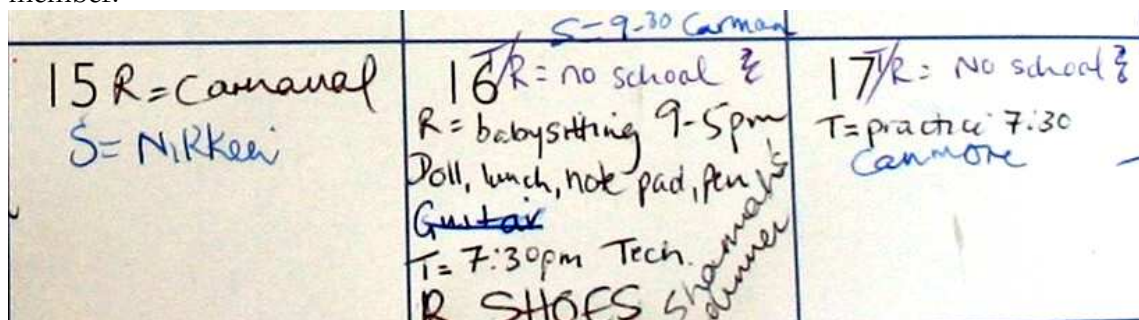 member.
S=9-30 Carman
15 R=Carnaval
S=Nikkei
16 T/R=no school
R=babysitting 9-5pm
Doll, lunch, note pad, pen
Guitar
T=7:30pm Tech.
R SHOES
dinner
17 T/R: No school
T=practice 7:30
Canmore